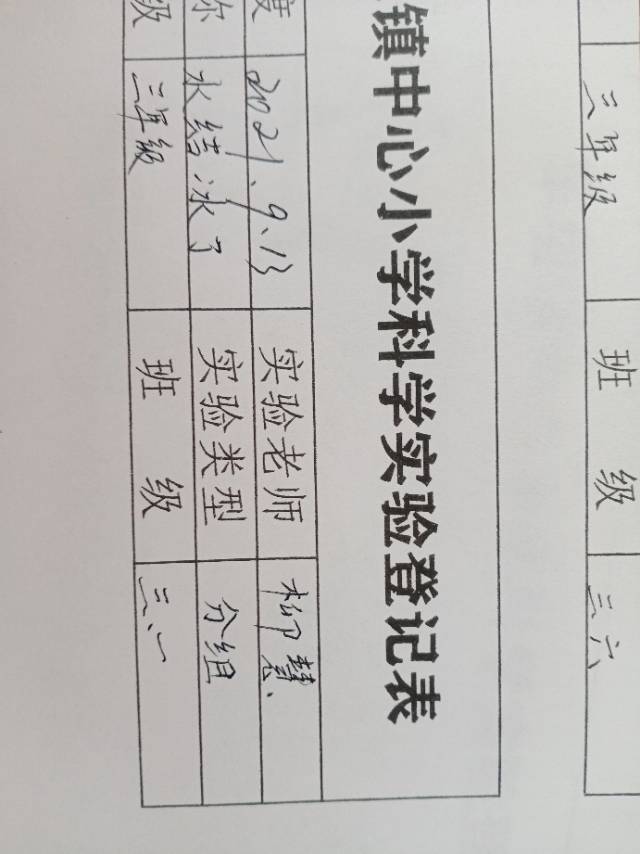 三年级 班 级 三六
镇中心小学科学实验登记表
度 2021.9.13 实验老师 柳慧、
称 水结冰了 实验类型 分组
级 三年级 班 级 三、一